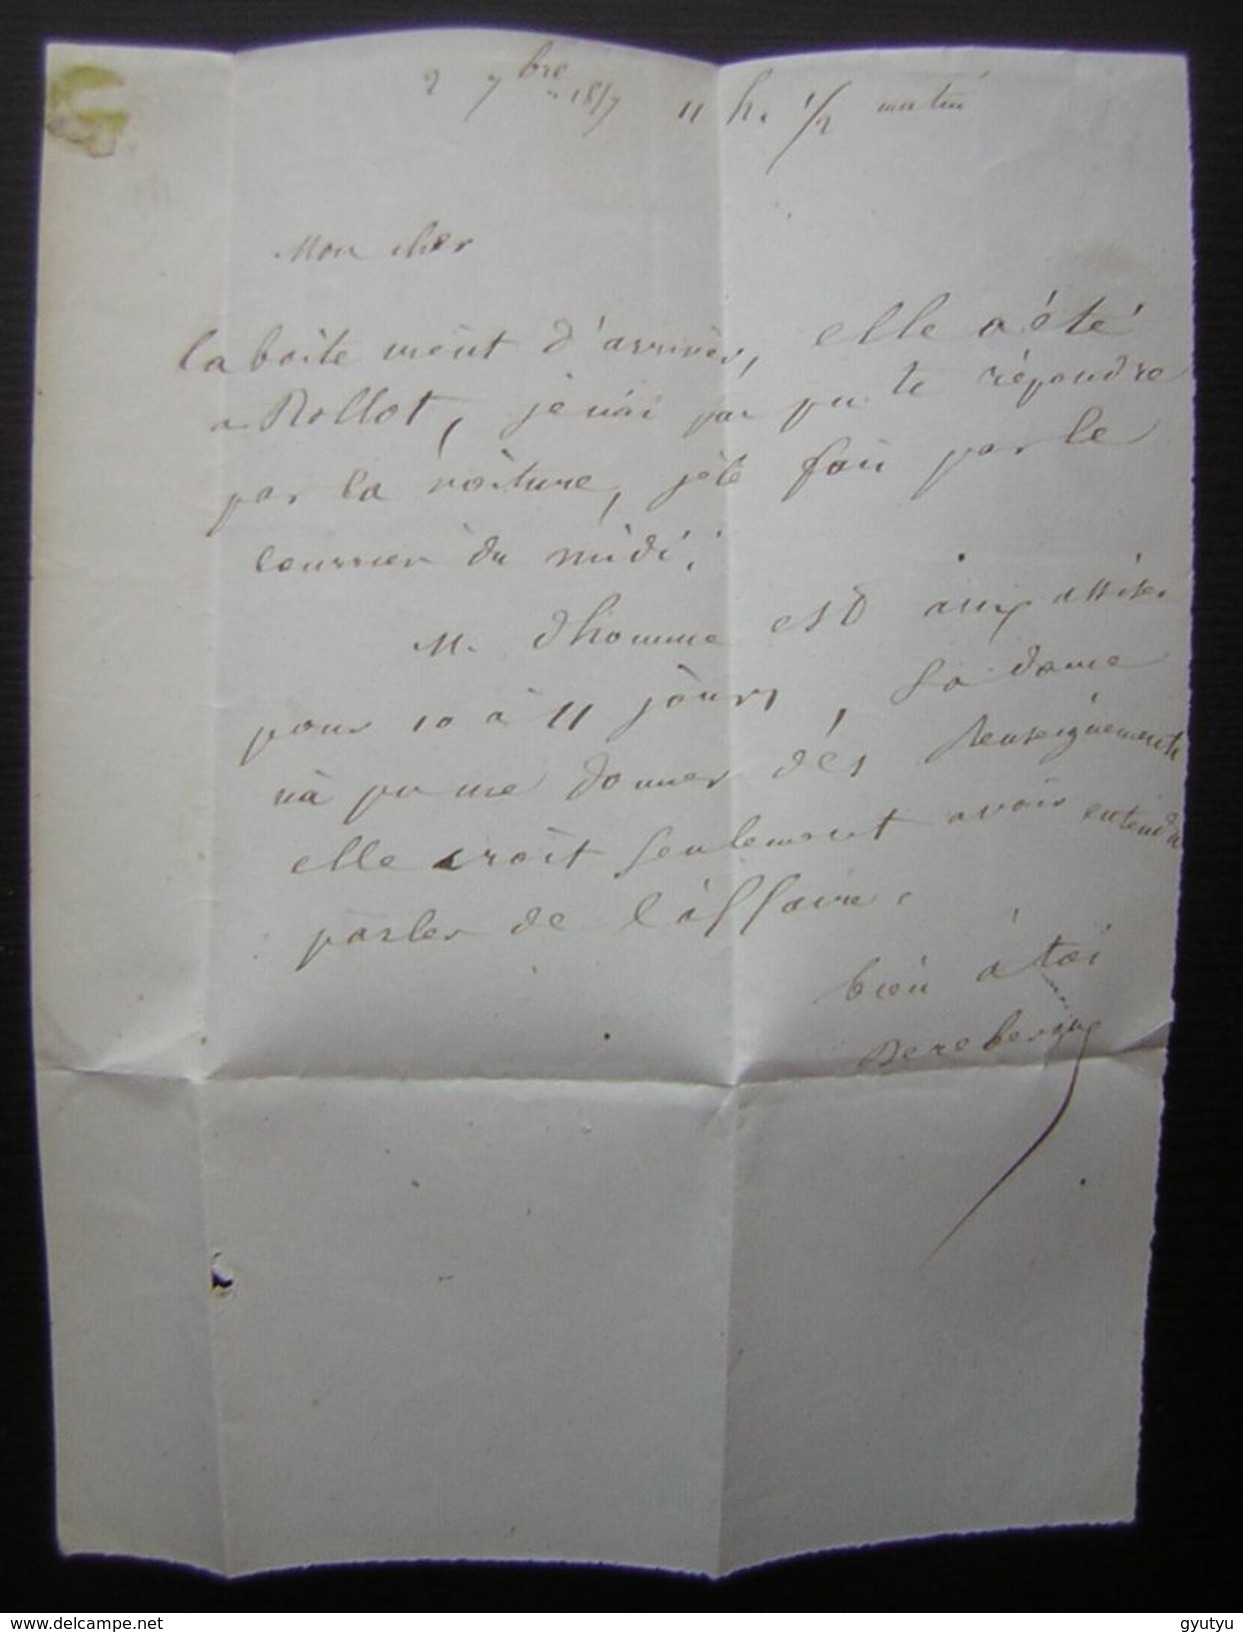 2 7bre 1857 11 h. 1/2 matin
Mon cher
la boîte vient d'arriver, elle a été
a Rollot, je n'ai pas pu te répondre
par la voiture, je le fais par le
courrier du midi.
M. Dhomme est aux assises
pour 10 à 11 jours, sa dame
n'a pu me donner des renseignements
elle croit seulement avoir entendu
parler de l'affaire.
bien à toi
delcampe.net
gyutyu